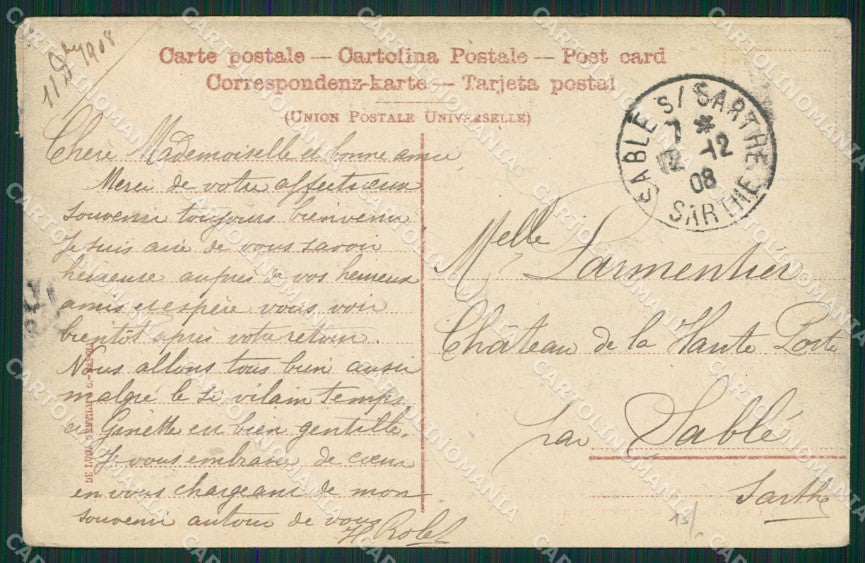 11 Dbre 1908
Carte postale — Cartolina Postale — Post card
Correspondenz-karte — Tarjeta postal
(UNION POSTALE UNIVERSELLE)
SABLE S/ SARTHE
7 *
12 -12
08
SARTHE
Chère Mademoiselle et bonne amie
Merci de votre affectueux
souvenir toujours bienvenu
Je suis aise de vous savoir
heureuse auprès de vos heureux
amis et espère vous voir
bientôt après votre retour.
Nous allons tous bien aussi
malgré le si vilain temps
et Ginette est bien gentille.
Je vous embrasse de cœur
en vous chargeant de mon
souvenir autour de vous
H. Rolet
Melle Larmentier
Château de la Haute Porte
par Sablé
Sarthe
15/
CARTOLINOMANIA